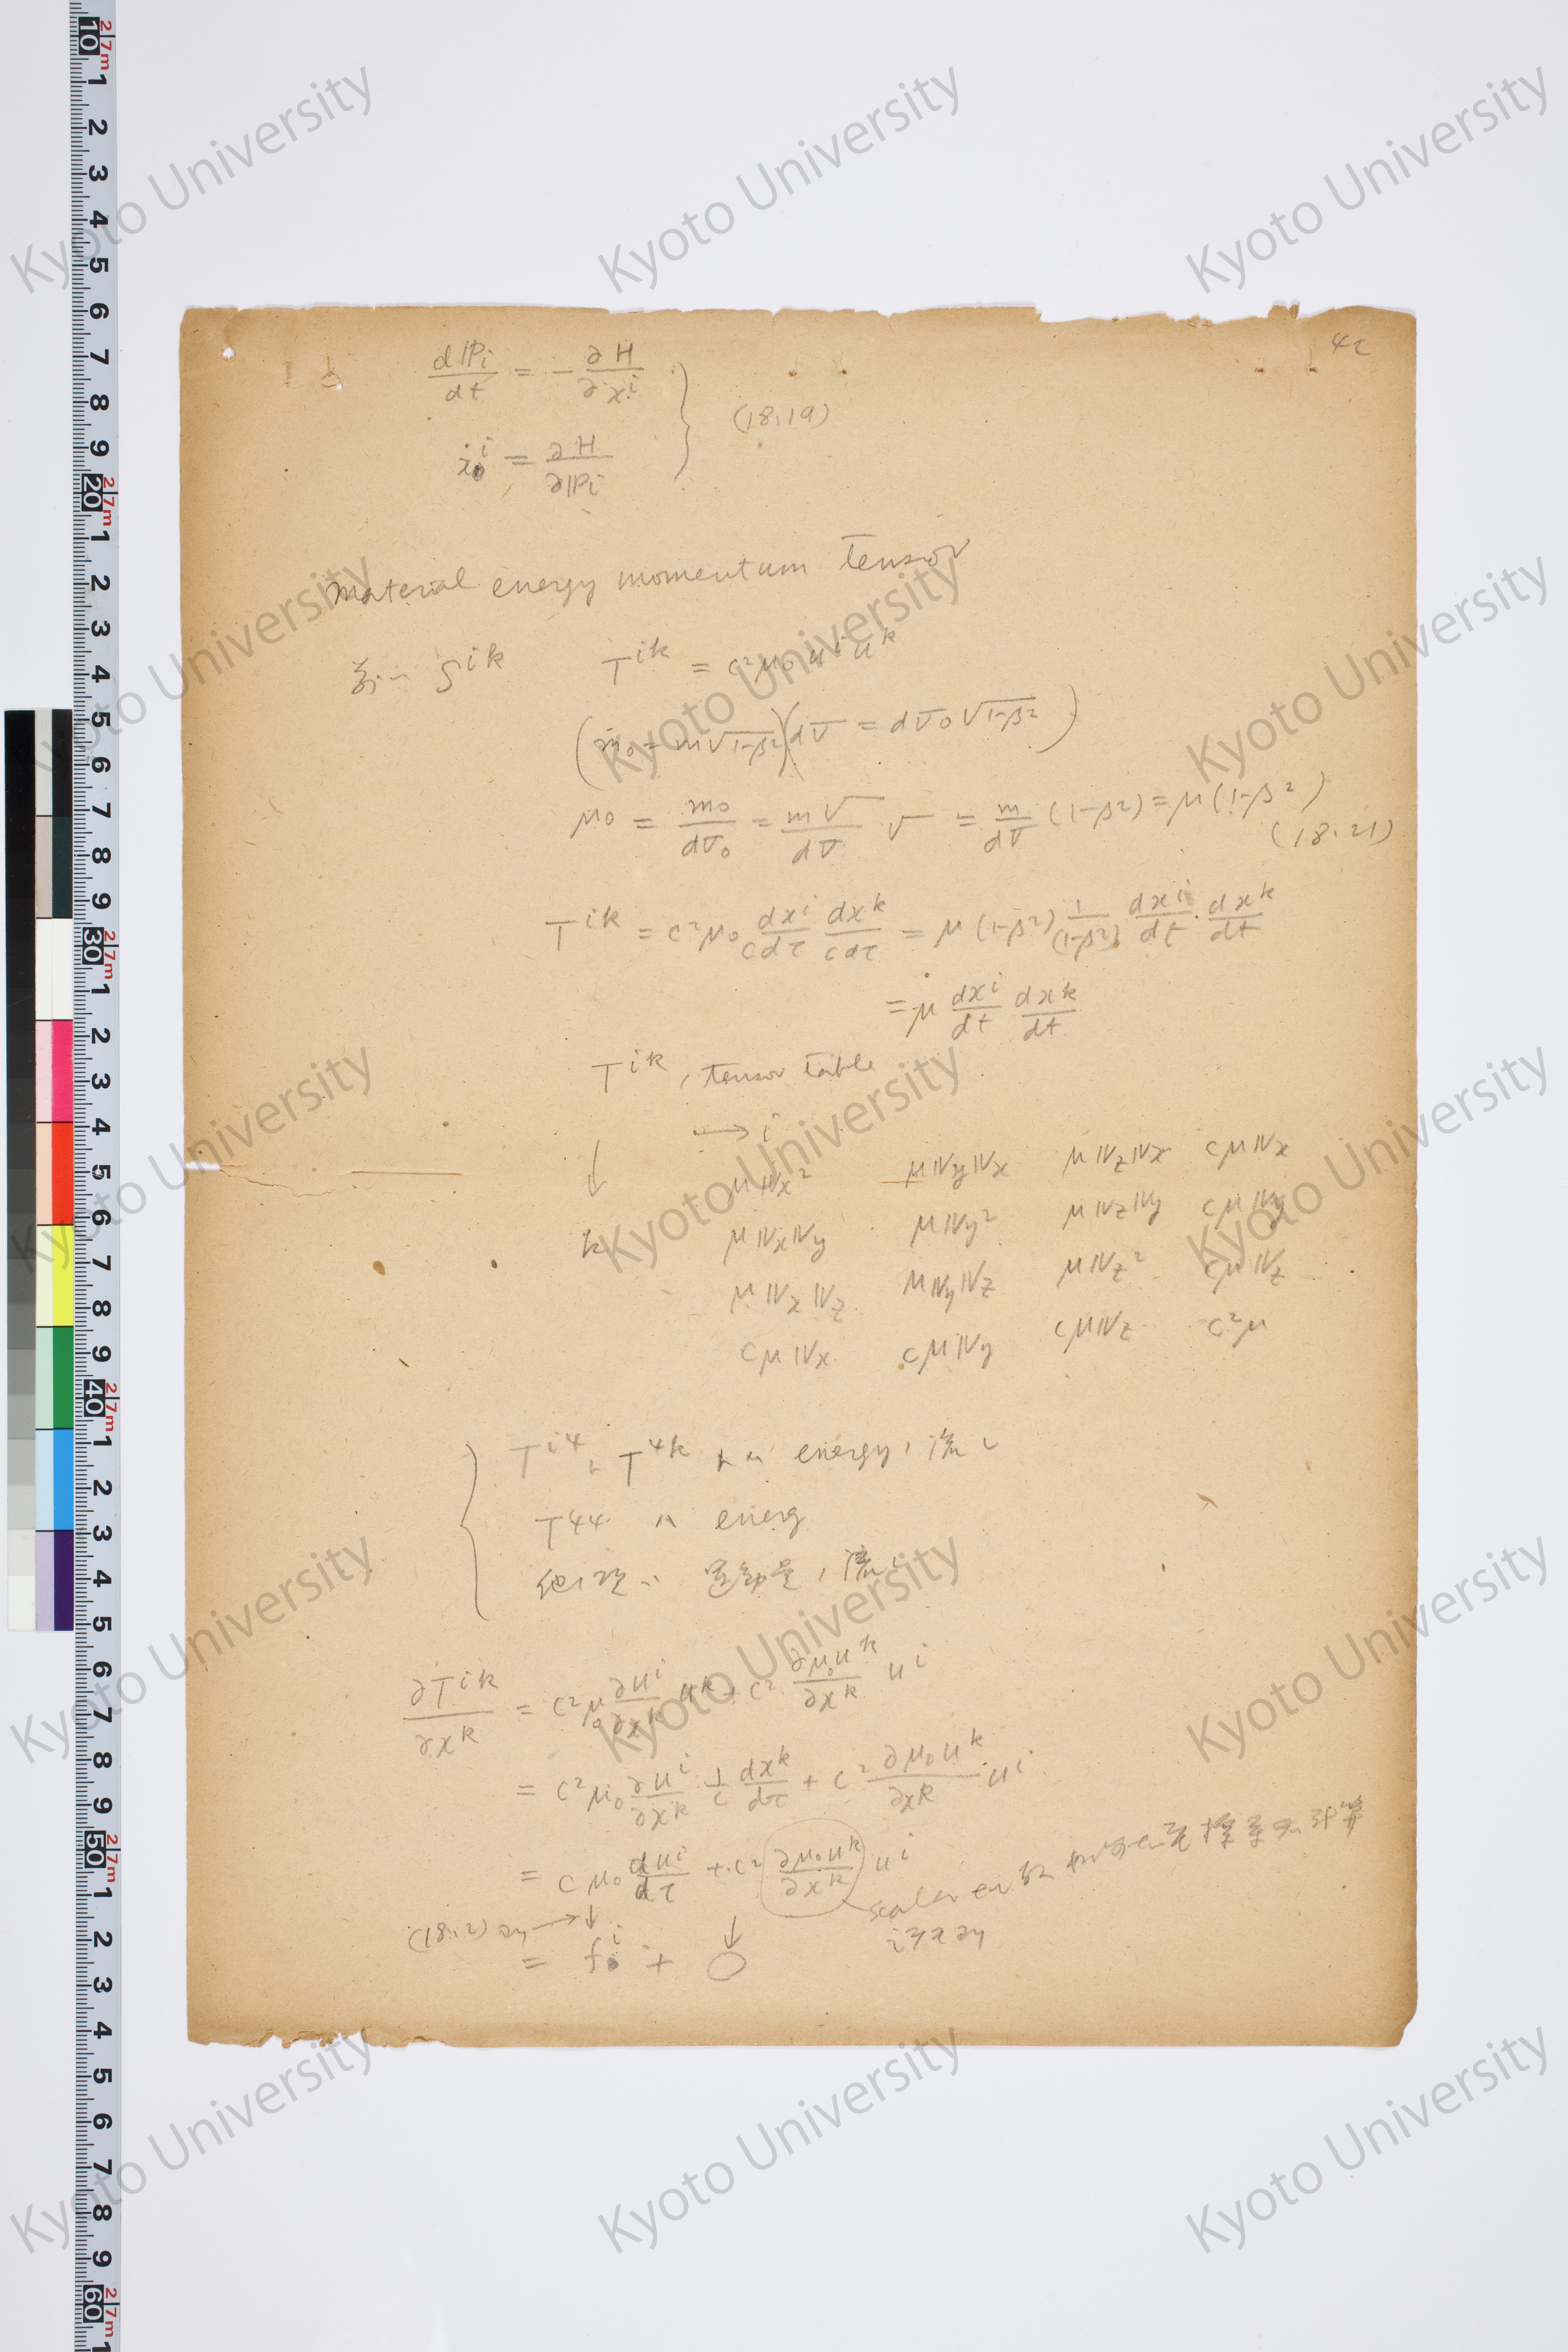 42
dℙi/dt = − ∂H/∂x^i
ẋ₀^i = ∂H/∂ℙi } (18.19)
material energy momentum Tensor
S^{ik} T^{ik} = c²μ₀ u^i u^k
(m₀ = m√(1-β²))(dV = dV₀√(1-β²))
μ₀ = m₀/dV₀ = m√/dV √ = m/dV (1-β²) = μ(1-β²)
(18.21)
T^{ik} = c²μ₀ dx^i/cdτ dx^k/cdτ = μ(1-β²) 1/(1-β²) dx^i/dt · dx^k/dt
= μ dx^i/dt dx^k/dt
T^{ik}, tensor table
→ i
↓ k
μ𝕍x² μ𝕍y𝕍x μ𝕍z𝕍x cμ𝕍x
μ𝕍x𝕍y μ𝕍y² μ𝕍z𝕍y cμ𝕍y
μ𝕍x𝕍z μ𝕍y𝕍z μ𝕍z² cμ𝕍z
cμ𝕍x cμ𝕍y cμ𝕍z c²μ
{ T^{i4} ト T^{4k} トハ energy ノ流レ
T^{44} ハ energ
他ノ項ハ 運動量ノ流レ
∂T^{ik}/∂x^k = c²μ₀ ∂u^i/∂x^k u^k + c² ∂μ₀u^k/∂x^k u^i
= c²μ₀ ∂u^i/∂x^k 1/c dx^k/dτ + c² ∂μ₀u^k/∂x^k u^i
= cμ₀ du^i/dτ + c² ∂μ₀u^k/∂x^k u^i
scalar
(18.2) ヨリ → ↓ ↓
= f₀^i + 0